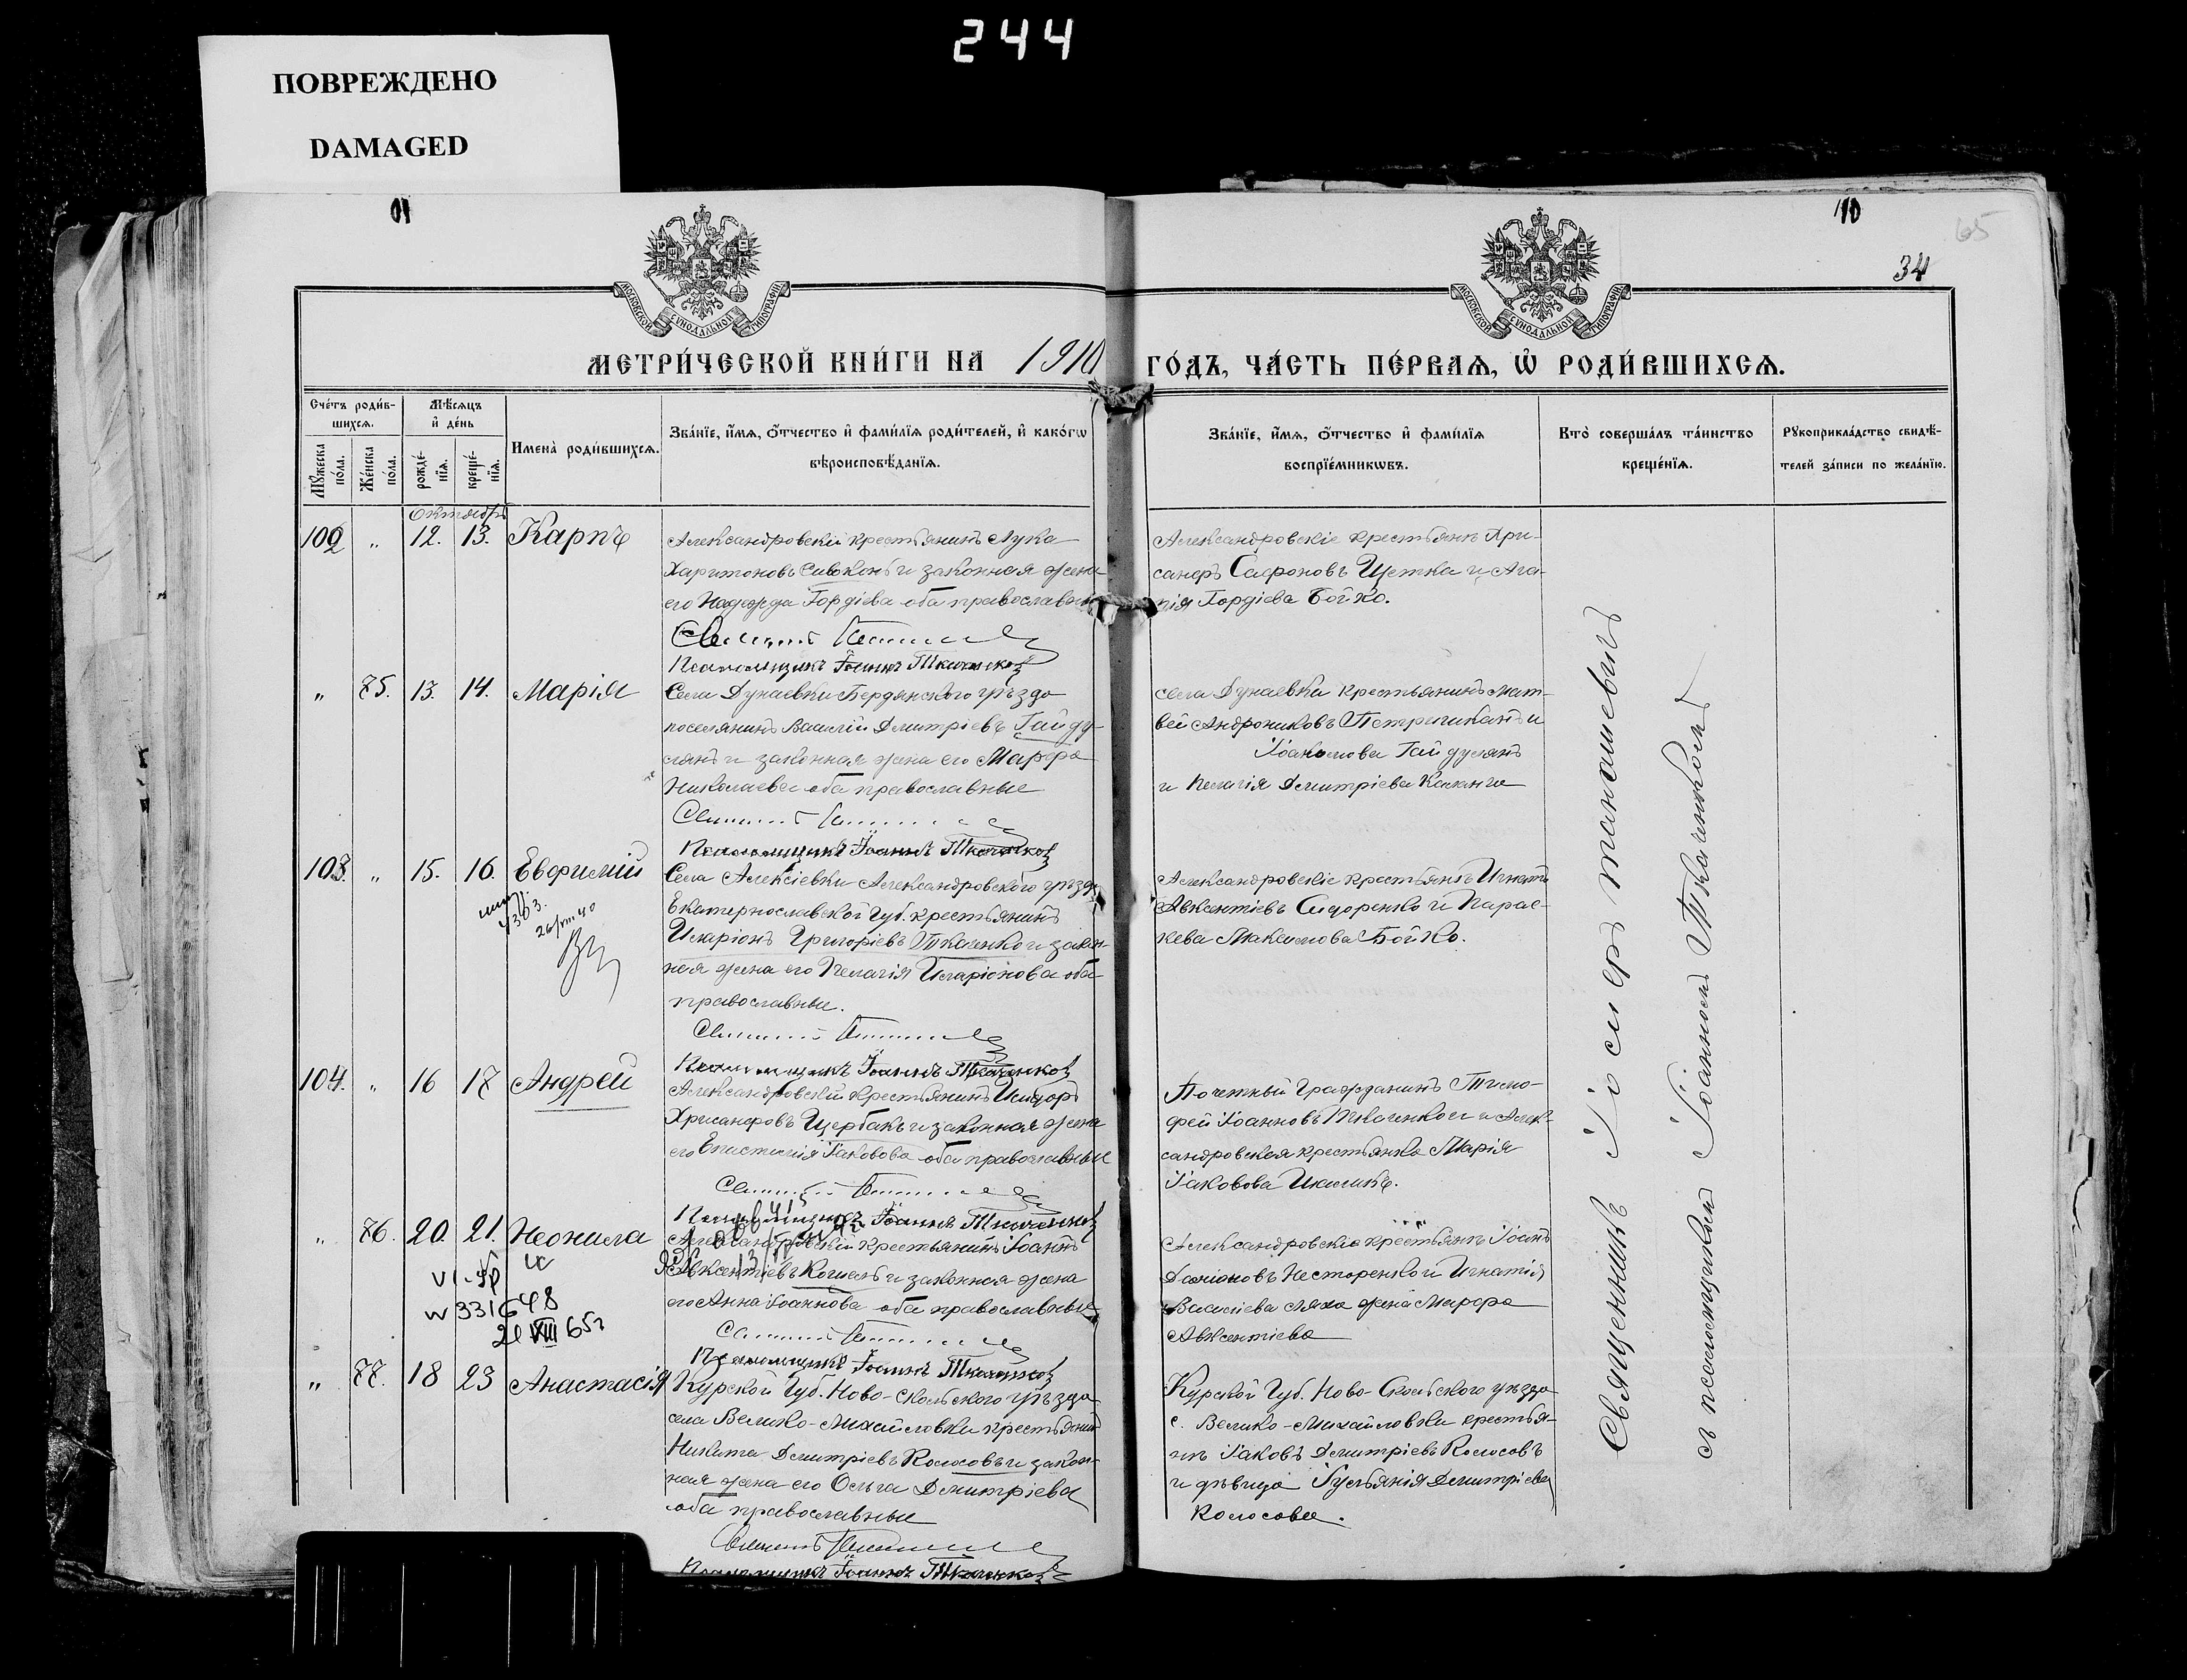 244
ПОВРЕЖДЕНО
DAMAGED
10
65
34
МОСКОВСКОЙ СѴНОДАЛЬНОЙ ТИПОГРАФІИ
МОСКОВСКОЙ СѴНОДАЛЬНОЙ ТИПОГРАФІИ
МЕТРИ́ЧЕСКОЙ КНИ́ГИ НА 1910 ГО́ДЪ, ЧА́СТЬ ПЕ́РВАЯ, Ѽ РОДИ́ВШИХСЯ.
Сче́тъ роди́в-
шихся.
Мѣ́сяцъ
и҆ де́нь
Мꙋ́жеска по́ла.
Же́нска по́ла.
рожде́-
нїя.
креще́-
нїя.
И҆мена̀ роди́вшихся.
Зва́нїе, и҆́мя, ѻ҆́тчество и҆ фами́лїя роди́телей, и҆ како́гѡ
вѣроисповѣ́данїя.
Зва́нїе, и҆́мя, ѻ҆́тчество и҆ фами́лїя
воспрїе́мникѡвъ.
Кто̀ соверша́лъ та́инство
креще́нїя.
Рꙋкоприкла́дство свидѣ́-
телей за́писи по жела́нїю.
Октябрь
102 „ 12. 13. Карпъ
Александровскій крестьянинъ Лука
Харитоновъ Сивоконь и законная жена
его Надежда Гордіева оба православные
Псаломщикъ Іоаннъ Ткаченков
Александровскіе крестьяне Хри-
санфъ Сафроновъ Щетка и Ага-
пія Гордіева Бойко.
„ 75. 13. 14. Марія
Села Дунаевки Бердянского уѣзда
поселянинъ Василій Дмитріевъ Гайду-
лянъ и законная жена его Марфа
Николаева оба православные
Псаломщикъ Іоаннъ Ткаченков
села Дунаевки крестьянинъ Мат-
вей Андрониковъ и
Гайдулянъ
и Пелагія Дмитріева
103. „ 15. 16. Евфимій
Села Алексіевки Александровского уѣзда
Екатеринославской Губ. крестьянинъ
Иларіонъ Григоріевъ Ткаченко и закон-
ная жена его Пелагія Иларіонова оба
православные.
Псаломщикъ Іоаннъ Ткаченков
Александровскіе крестьяне Игнатій
Авксентіевъ Сидоренко и Парас-
кева Максимова Бойко.
104. „ 16 17 Андрей
Александровскій крестьянинъ Исидоръ
Хрисанфовъ Щербакъ и законная жена
его Епистимія Іаковова оба православные
Псаломщикъ Іоаннъ Ткаченков
Почетный Гражданинъ Тимо-
фей Іоанновъ Ткаченков и Алек-
сандровская крестьянка Марія
Іаковова
„ 76. 20. 21. Неонила
W 331648
21 VIII 65г
Александровскій крестьянинъ Іоаннъ
Авксентіевъ Кошель и законная жена
его Анна Іоаннова оба православные
Псаломщикъ Іоаннъ Ткаченков
Александровскіе крестьяне Іоаннъ
Несторенко и Игнатія
Василіева Ляха жена Марфа
Авксентіева
„ 77. 18 23 Анастасія
Курской Губ. Ново-Оскольского уѣзда
села Велико-Михайловки крестьянинъ
Никита Дмитріевъ Колосовъ и закон-
ная жена его Ольга Дмитріева
оба православные
Псаломщикъ Іоаннъ Ткаченков
Курской Губ. Ново-Оскольского уѣзда
с. Велико-Михайловки крестья-
не Іаковъ Дмитріевъ Колосовъ
и дѣвица Дмитріева
Колосова.
Священникъ Іосифъ
съ псаломщикомъ Іоанномъ Ткаченковымъ